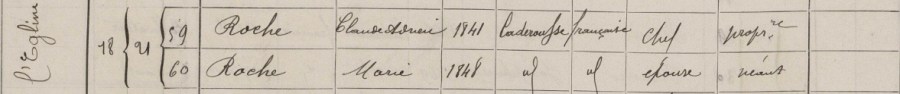 l'Eglise
18 21 59 Roche Claude Adrien 1841 Caderousse française chef propre
60 Roche Marie 1848 id id épouse néant